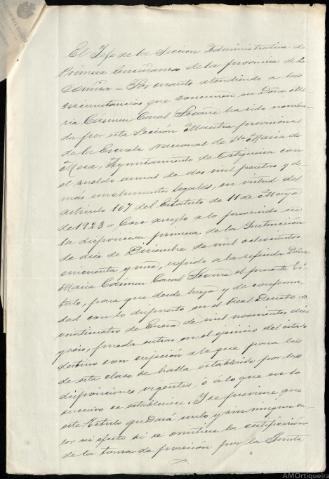 El Jefe de la Sección Administrativa de
Primera Enseñanza de la provincia de
Coruña = Por cuanto atendiendo a las
circunstancias que concurren en Doña Ma-
ria Carmen Canal ha sido nombra-
da por esta Sección Maestra provisional
de la Escuela Nacional de Stª María de
Mera, Ayuntamiento de Ortigueira con
el sueldo anual de dos mil pesetas y de-
más emolumentos legales, en virtud del
artículo 107 del Estatuto de 18 de Mayo
de 1923 = Con arreglo a lo prevenido en
la disposición primera de la Instrucción
de diez de Diciembre de mil ochocientos
cincuenta y uno, expido a la referida Doña
María Carmen Canal el presente tí-
tulo, para que desde luego y de conformi-
dad con lo dispuesto en el Real Decreto de
veintiuno de Enero de mil novecientos diez
pueda entrar en el ejercicio del citado
destino con sujeción a lo que para los
de esta clase se halla establecido por las
disposiciones vigentes, o a lo que en lo
sucesivo se estableciere. Y se previene que
este título quedará nulo y sin ningún va-
lor ni efecto si se omitiese la certificación
de la toma de posesión por la Junta
AMOrtigueira